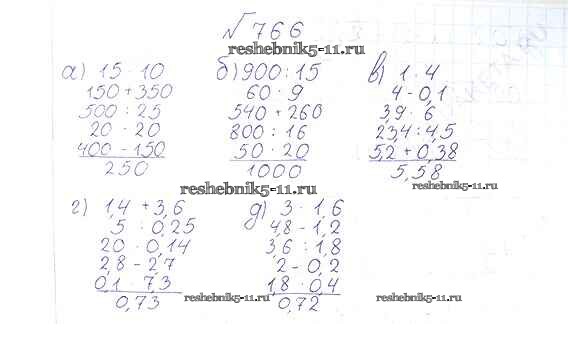 № 766
reshebnik5-11.ru
а) 15 · 10
150 + 350
500 : 25
20 · 20
400 - 150
250
б) 900 : 15
60 · 9
540 + 260
800 : 16
50 · 20
1000
в) 1 · 4
4 - 0,1
3,9 · 6
23,4 : 4,5
5,2 + 0,38
5,58
reshebnik5-11.ru
г) 1,4 + 3,6
5 : 0,25
20 · 0,14
2,8 - 2,7
0,1 · 7,3
0,73
д) 3 · 1,6
4,8 - 1,2
3,6 : 1,8
2 - 0,2
1,8 · 0,4
0,72
reshebnik5-11.ru
reshebnik5-11.ru